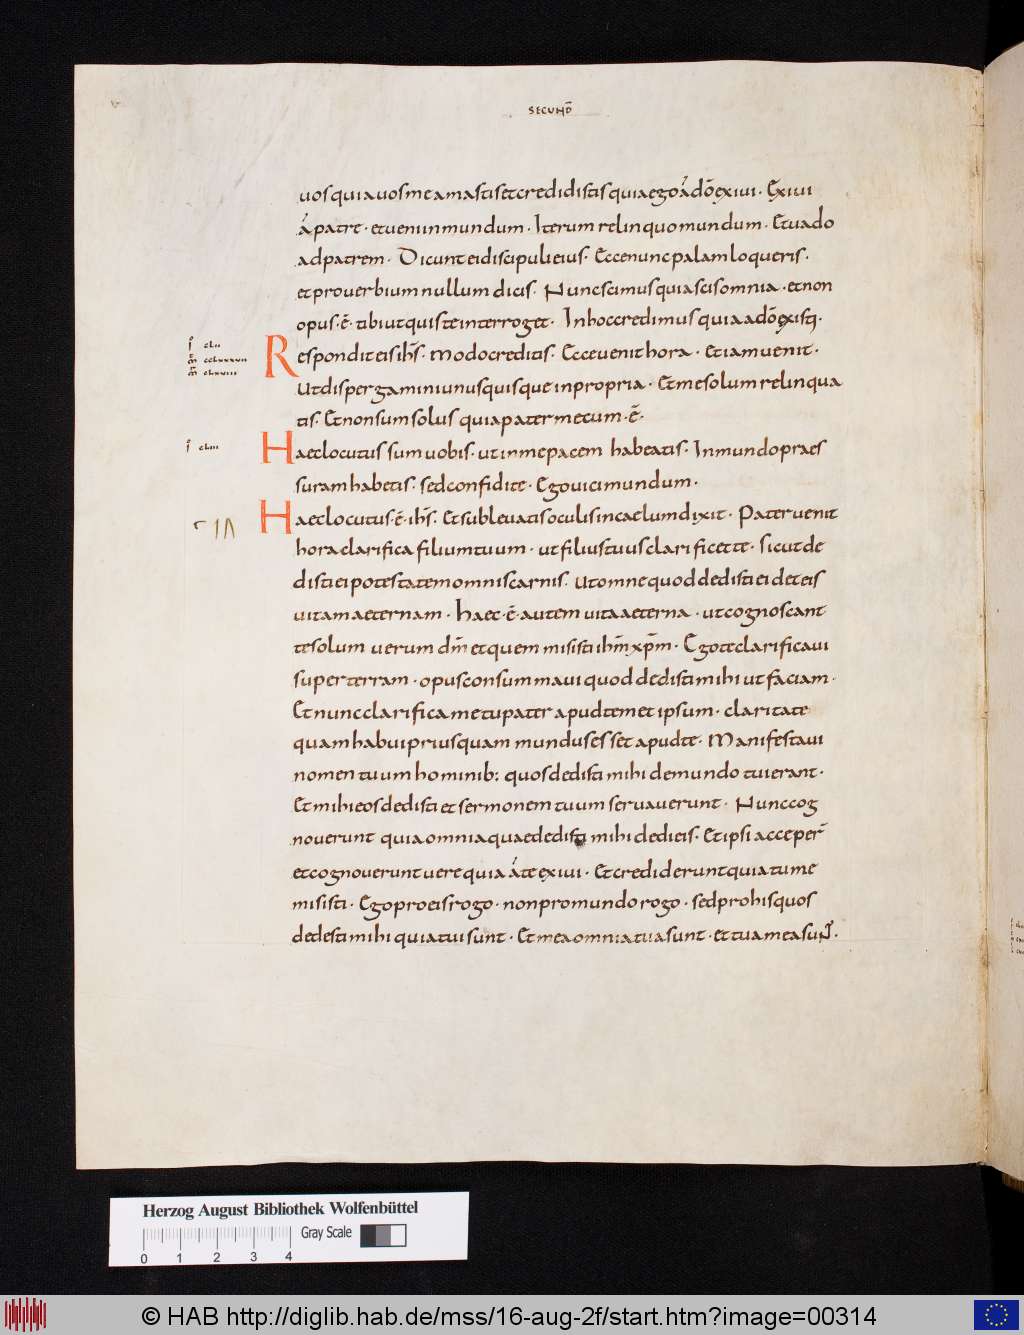 SECUND̄
uos quia uos me amastis et credidistis quia ego a dō exiui · Exiui
a patre · et ueni in mundum · Iterum relinquo mundum · Et uado
ad patrem · Dicunt ei discipuli eius · Ecce nunc palam loqueris ·
et prouerbium nullum dicis · Nunc scimus quia scis omnia · et non
opus · ē · tibi ut quis te interroget · In hoc credimus quia a dō existi ·
I CLII
Respondit eis ihs̄ · Modo creditis · Ecce uenit hora · Et iam uenit ·
M̄ CCLXXXVII
M̄ CLXVIII
Ut dispergamini unus quisque in propria · Et me solum relinqua
tis · Et non sum solus quia pater mecum · ē ·
I CLIII
Haec locutus sum uobis · ut in me pacem habeatis · In mundo praes
suram habetis · sed confidite · Ego uici mundum ·
Haec locutus · ē · ihs̄ · Et subleuatis oculis in caelum dixit · Pater uenit
hora clarifica filium tuum · ut filius tuus clarificet te · sicut de
disti ei potestatem omnis carnis · Ut omne quod dedisti ei det eis
uitam aeternam · Haec · ē · autem uita aeterna · ut cognoscant
te solum uerum dm̄ et quem misisti ihm̄ xpm̄ · Ego te clarificaui
super terram · opus consummaui quod dedisti mihi ut faciam ·
Et nunc clarifica me tu pater apud temet ipsum · claritate
quam habui priusquam mundus esset apud te · Manifestaui
nomen tuum hominib: quos dedisti mihi de mundo tui erant ·
Et mihi eos dedisti et sermonem tuum seruauerunt · Nunc cog
nouerunt quia omnia quae dedisti mihi dedicis · Et ipsi acceper̄
et cognouerunt uere quia a te exiui · Et crediderunt quia tu me
misisti · Ego pro eis rogo · non pro mundo rogo · sed pro his quos
dedesti mihi quia tui sunt · Et mea omnia tua sunt · et tua mea suN̄ ·
Herzog August Bibliothek Wolfenbüttel
Gray Scale
0 1 2 3 4
© HAB http://diglib.hab.de/mss/16-aug-2f/start.htm?image=00314